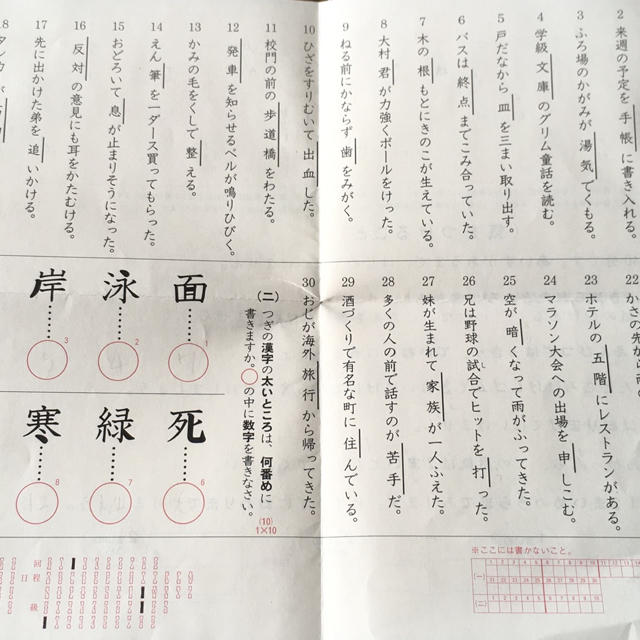 2 来週の予定を手帳に書き入れる。
3 ふろ場のかがみが湯気でくもる。
4 学級文庫のグリム童話を読む。
5 戸だなから皿を三まい取り出す。
6 バスは終点までこみ合っていた。
7 木の根もとにきのこが生えている。
8 大村君が力強くボールをけった。
9 ねる前にかならず歯をみがく。
10 ひざをすりむいて出血した。
11 校門の前の歩道橋をわたる。
12 発車を知らせるベルが鳴りひびく。
13 かみの毛をくしで整える。
14 えん筆を一ダース買ってもらった。
15 おどろいて息が止まりそうになった。
16 反対の意見にも耳をかたむける。
17 先に出かけた弟を追いかける。
18
22 かさの先から
23 ホテルの五階にレストランがある。
24 マラソン大会への出場を申しこむ。
25 空が暗くなって雨がふってきた。
26 兄は野球の試合でヒットを打った。
27 妹が生まれて家族が一人ふえた。
28 多くの人の前で話すのが苦手だ。
29 酒づくりで有名な町に住んでいる。
30 おじが海外旅行から帰ってきた。
(二) つぎの漢字の太いところは、何番めに
書きますか。○の中に数字を書きなさい。
(10)
1×10
面 1
泳 2
岸 3
死 6
緑 7
寒 8
※ここには書かないこと。
(一)
1 2 3 4 5 6 7 8 9 10 11 12 13 14
(二)
回
程
日
級